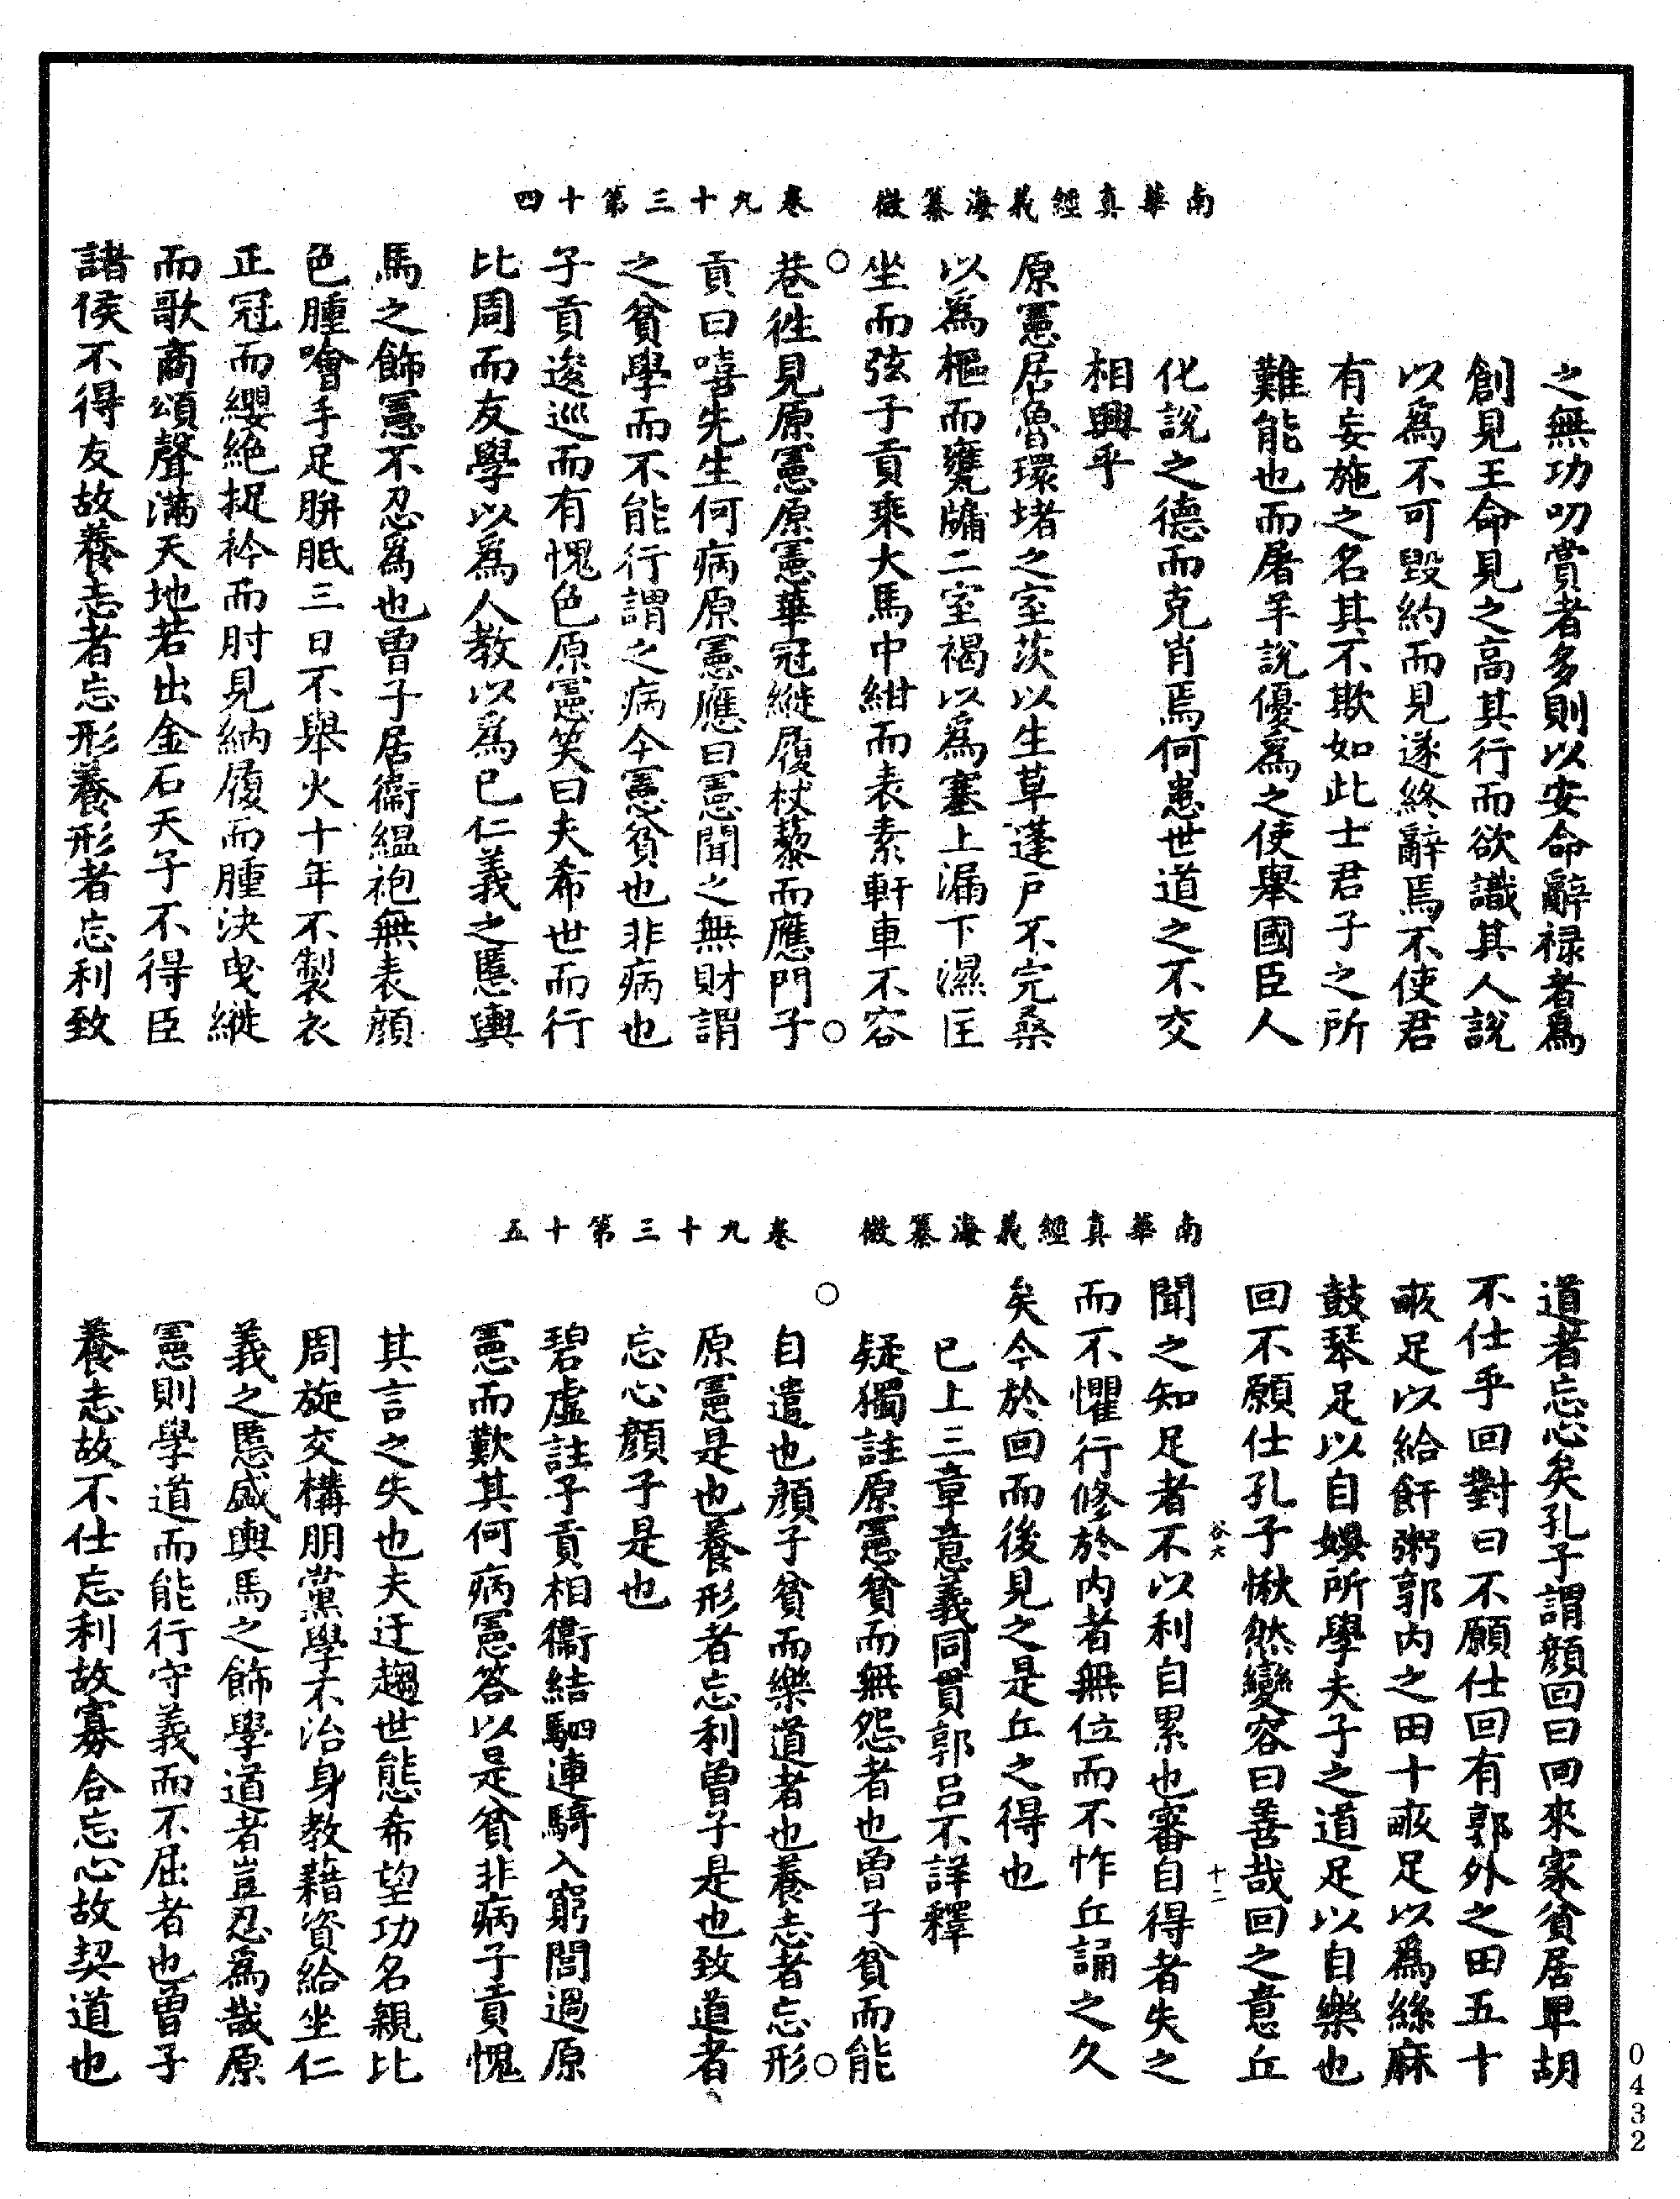 南華真經義海纂微　卷九十三第十四
之無功叨賞者多則以安命辭祿者爲
創見王命見之高其行而欲識其人說
以爲不可毀約而見遂終辭焉不使君
有妄施之名其不欺如此士君子之所
難能也而屠羊說優爲之使舉國臣人
化說之德而克肖焉何患世道之不交
相興乎
原憲居魯環堵之室茨以生草蓬戶不完桑
以爲樞而甕牖二室褐以爲塞上漏下濕匡
坐而弦子貢乘大馬中紺而表素軒車不容
巷徃見原憲原憲華冠縰履杖藜而應門子
貢曰嘻先生何病原憲應曰憲聞之無財謂
之貧學而不能行謂之病今憲貧也非病也
子貢逡巡而有愧色原憲笑曰夫希世而行
比周而友學以爲人教以爲已仁義之慝輿
馬之飾憲不忍爲也曾子居衛緼袍無表顔
色腫噲手足胼胝三日不舉火十年不製衣
正冠而纓絶捉衿而肘見納履而腫決曳縰
而歌商頌聲滿天地若出金石天子不得臣
諸侯不得友故養志者忘形養形者忘利致
南華真經義海纂微　卷九十三第十五
道者忘心矣孔子謂顔回曰回來家貧居卑胡
不仕乎回對曰不願仕回有郭外之田五十
畝足以給飦粥郭内之田十畝足以爲絲麻
鼓琴足以自娱所學夫子之道足以自樂也
回不願仕孔子愀然變容曰善哉回之意丘
谷六　十二
聞之知足者不以利自累也審自得者失之
而不懼行修於内者無位而不怍丘誦之久
矣今於回而後見之是丘之得也
已上三章意義同貫郭吕不詳釋
疑獨註原憲貧而無怨者也曾子貧而能
自遣也顔子貧而樂道者也養志者忘形
原憲是也養形者忘利曾子是也致道者
忘心顔子是也
碧虛註子貢相衛結駟連騎入窮閭過原
憲而歎其何病憲答以是貧非病子貢愧
其言之失也夫迂趨世態希望功名親比
周旋交構朋黨學不治身教藉資給坐仁
義之慝盛輿馬之飾學道者豈忍爲哉原
憲則學道而能行守義而不屈者也曾子
養志故不仕忘利故寡合忘心故契道也
0432